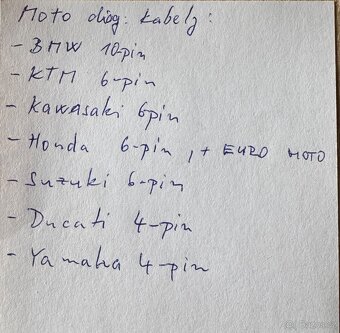 Moto diag. kabely:
- BMW 10-pin
- KTM 6-pin
- Kawasaki 6pin
- Honda 6-pin, + EURO MOTO
- Suzuki 6-pin
- Ducati 4-pin
- Yamaha 4-pin